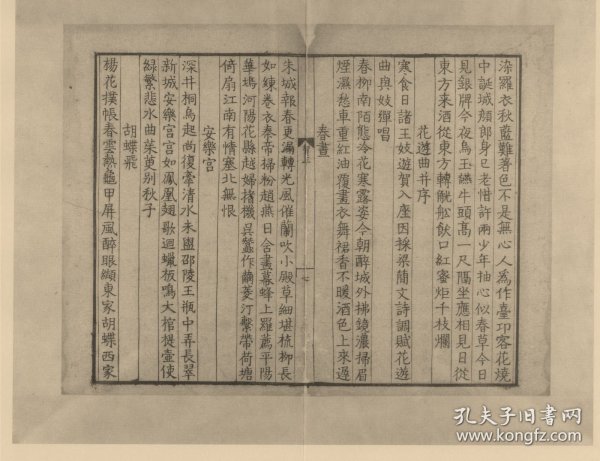 染羅衣秋藍難著色不是無心人為作臺邛客花燒
中誕城頗郎身已老惜許兩少年抽心似春草今日
見銀牌今夜鳴玉讌牛頭高一尺隔坐應相見日從
東方來酒從東方轉觥舩飲口紅蜜炬千枝爛
花遊曲并序
寒食日諸王妓遊賀入座因採梁簡文詩調賦花遊
曲與妓彈唱
春柳南陌態冷花寒露姿今朝醉城外拂鏡濃掃眉
煙濕愁車重紅油覆畫衣舞裙香不暖酒色上來遲
春晝
朱城報春更漏轉光風催蘭吹小殿草細堪梳柳長
如線卷衣奉帝掃粉趙燕日含畫幕蜂上羅薦平陽
花塢河陽花縣越婦搘機吳蠶作繭菱汀繫帶荷塘
倚扇江南有情塞北無恨
安樂宮
深井桐烏起尚復牽清水未盥邵陵王瓶中弄長翠
新城安樂宮宮如鳳凰翅歌迴蠟板鳴大棺提壺使
綠繁悲水曲茱萸別秋子
胡蝶飛
楊花撲帳春雲熱龜甲屏風醉眼纈東家胡蝶西家
孔夫子旧書网
www.kongfz.com